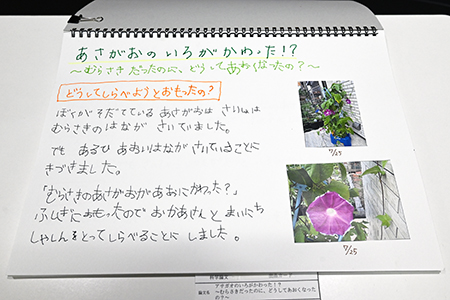 あさがおのいろがかわった!?
～むらさきだったのに、どうしてあおくなったの?～
どうしてしらべようとおもったの?
ぼくがそだてている あさがおは さいしょは
むらさきの はなが さいていました。
でも あるひ あおいはながさいていることに
きづきました。
「むらさきのあさがおが あおにかわった?」
ふしぎにおもったので おかあさんと まいにち
しゃしんをとってしらべることに しました。
7/25
7/25
アサガオのいろがかわった!?
～むらさきだったのに、どうしてあおくなった
の?～